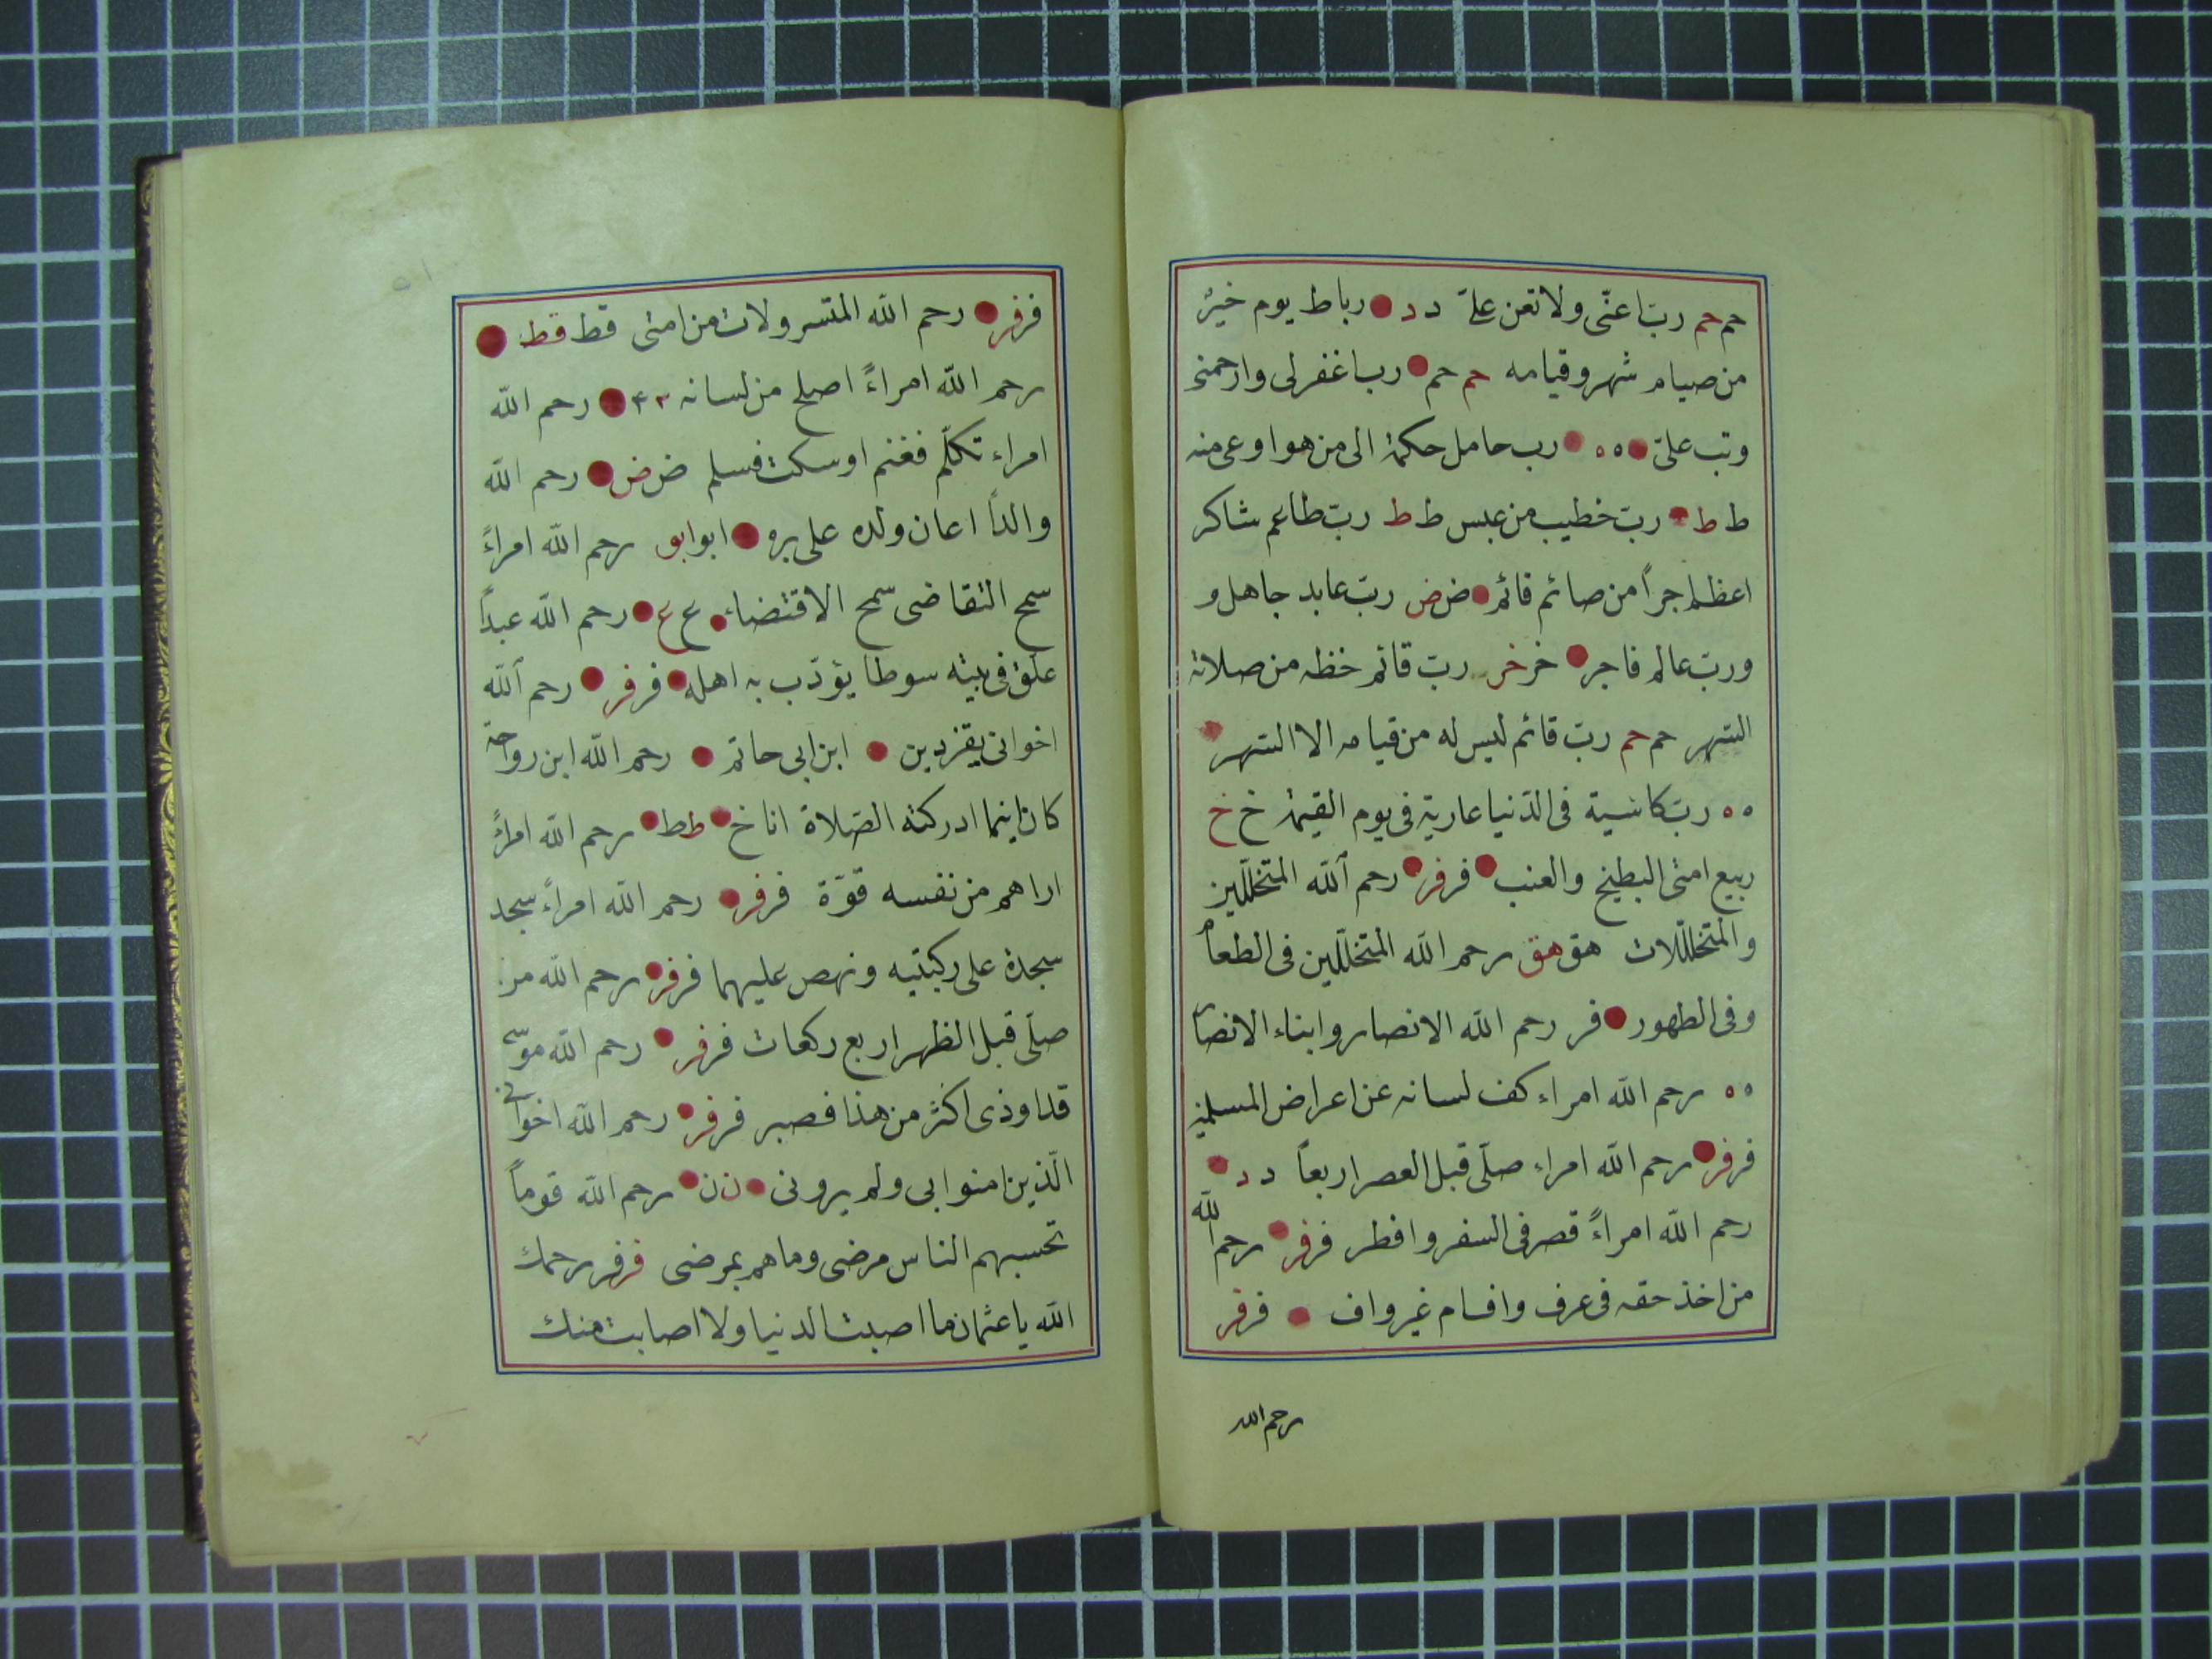 حم حم رب اعنّى ولا تعن علىّ د د رباط يوم خير
من صيام شهر وقيامه حم حم رب اغفر لى وارحمنى
وتب علىّ ٥٥ رب حامل حكمة الى من هو اوعى منه
ط ط ربّ خطيب من عبس ط ط ربّ طاعم شاكر
اعظم اجراً من صائم قائم ض ض ربّ عابد جاهل و
وربّ عالم فاجر خر خر ربّ قائم حظه من صلاته
السهر حم حم ربّ قائم ليس له من قيامه الا السهر
٥٥ ربّ كاسية فى الدّنيا عارية فى يوم القيمة خ خ
ربيع امتى البطيخ والعنب فر فر رحم الله المتخلّلين
والمتخلّلات هق هق رحم الله المتخلّلين فى الطعام
وفى الطهور فر رحم الله الانصار وابناء الانصار
٥٥ رحم الله امراء كف لسانه عن اعراض المسلمين
فر فر رحم الله امراء صلّى قبل العصر اربعاً د د
رحم الله امراءً قصر فى السفر وافطر فر فر رحم الله
من اخذ حقه فى عرف واف ام غير واف فر فر
رحم الله
فر فر رحم الله المتسرولات من امتى قط قط
رحم الله امراءً اصلح من لسانه ٤٢ رحم الله
امراء تكلّم فغنم او سكت فسلم ض ض رحم الله
والداً اعان ولده على بره ابو ابو رحم الله امراءً
سمح التقاضى سمح الاقتضاء ع ع رحم الله عبداً
علّق فى بيته سوطا يؤدّب به اهله فر فر رحم الله
اخوانى بقزوين ابن ابى حاتم رحم الله ابن رواحة
كان اينما ادركته الصّلاة اناخ ط ط رحم الله امراءً
اراهم من نفسه قوّة فر فر رحم الله امراءً سجد
سجدة على ركبتيه ونهض عليهما فر فر رحم الله من
صلّى قبل الظهر اربع ركعات فر فر رحم الله موسى
قد اوذى اكثر من هذا فصبر فر فر رحم الله اخوانى
الّذين امنوا بى ولم يرونى ن ن رحم الله قوماً
تحسبهم الناس مرضى وما هم بمرضى فر فر رحمك
الله يا عثمان ما اصبت الدنيا ولا اصابت منك